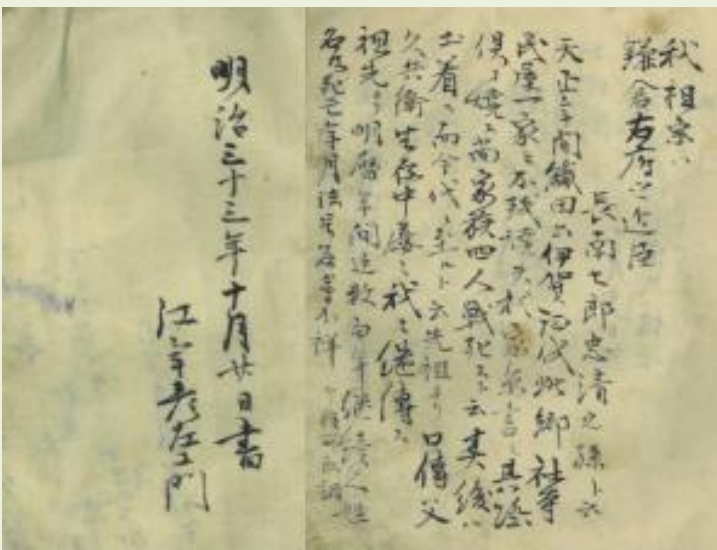 我祖宗ハ
鎌倉右府之近臣
長南七郎忠清之孫ト云
天正年間織田公伊賀征伐此郷社寺
民屋一家モ不残焼失我家系書モ其際
倶ニ焼亡尚家族四人戦死スト云其後ハ
土着シ而今代ニ至ルト云先祖ヨリ口傳父
久兵衛生存中屡々我ニ継傳ス
祖先ヨリ明暦年間迄数百年継続人
名死亡年月法号等不詳
明治三十三年十月廿日書